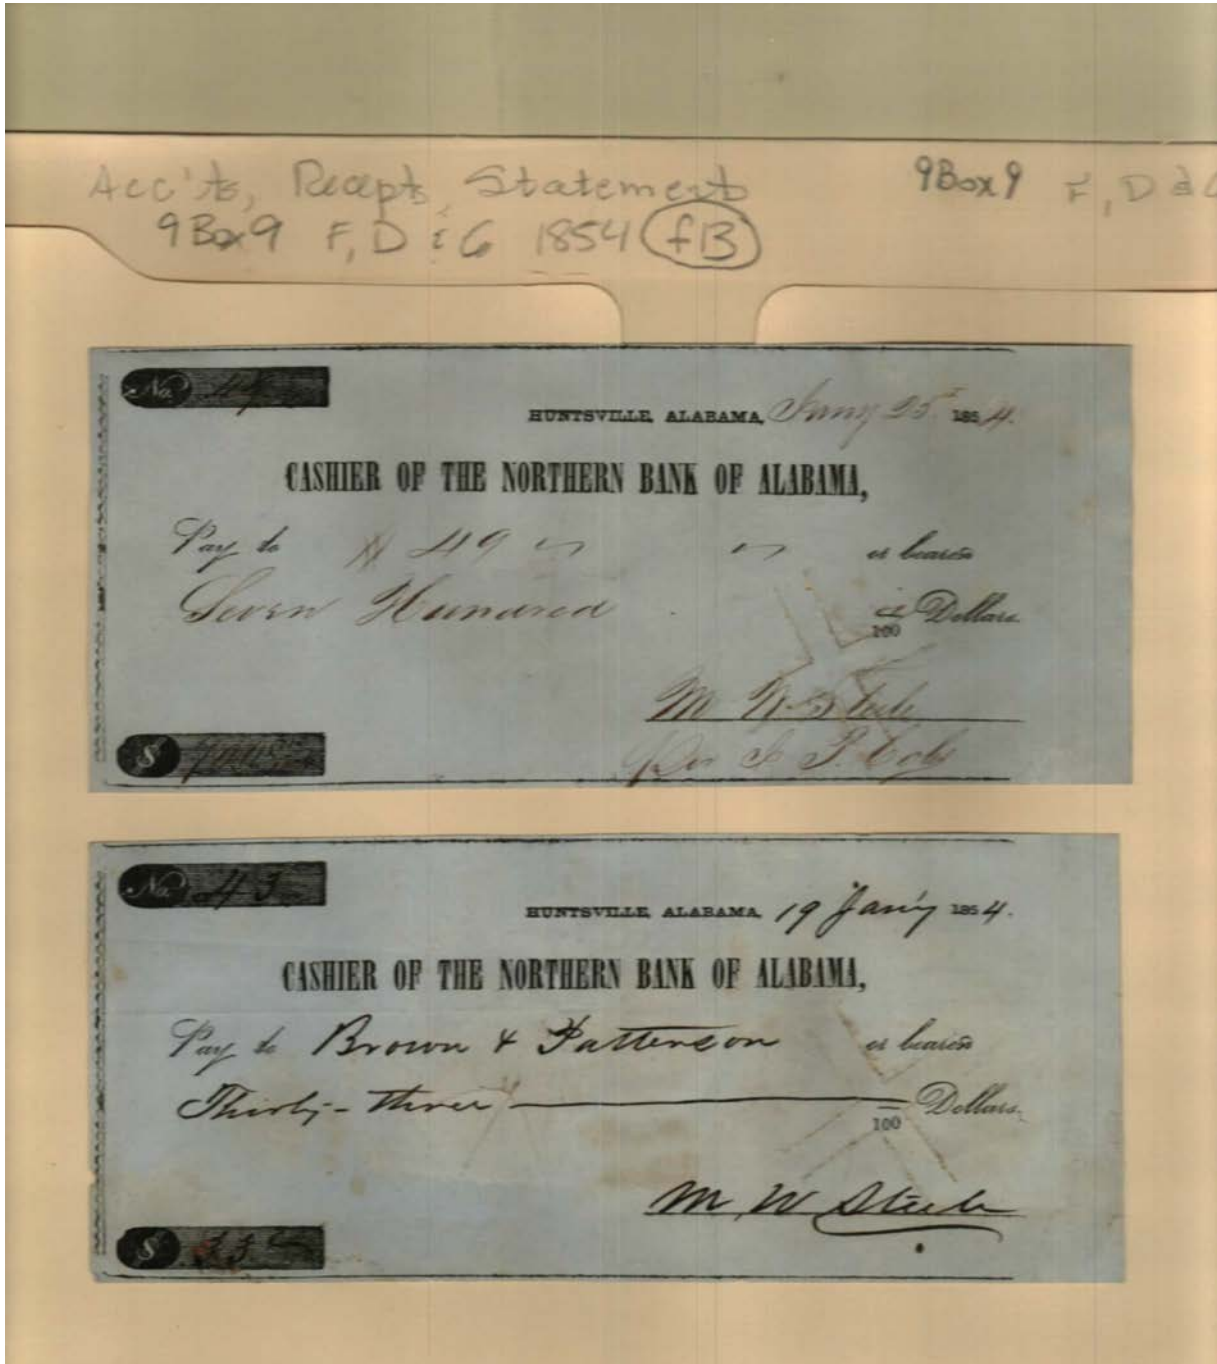 Acc'ts, Recepts, Statements 9Box9 F, D &
9Box9 F, D & G 1854 f13
No.
HUNTSVILLE, ALABAMA, Jany 25th 1854.
CASHIER OF THE NORTHERN BANK OF ALABAMA,
Pay to # 49 or bearer
Seven Hundred /100 Dollars.
M W Steele
Per
$ 700
No. 43
HUNTSVILLE, ALABAMA, 19 Jan'y 1854.
CASHIER OF THE NORTHERN BANK OF ALABAMA,
Pay to Brown & Patterson or bearer
Thirty-three /100 Dollars.
M, W Steele
$ 33